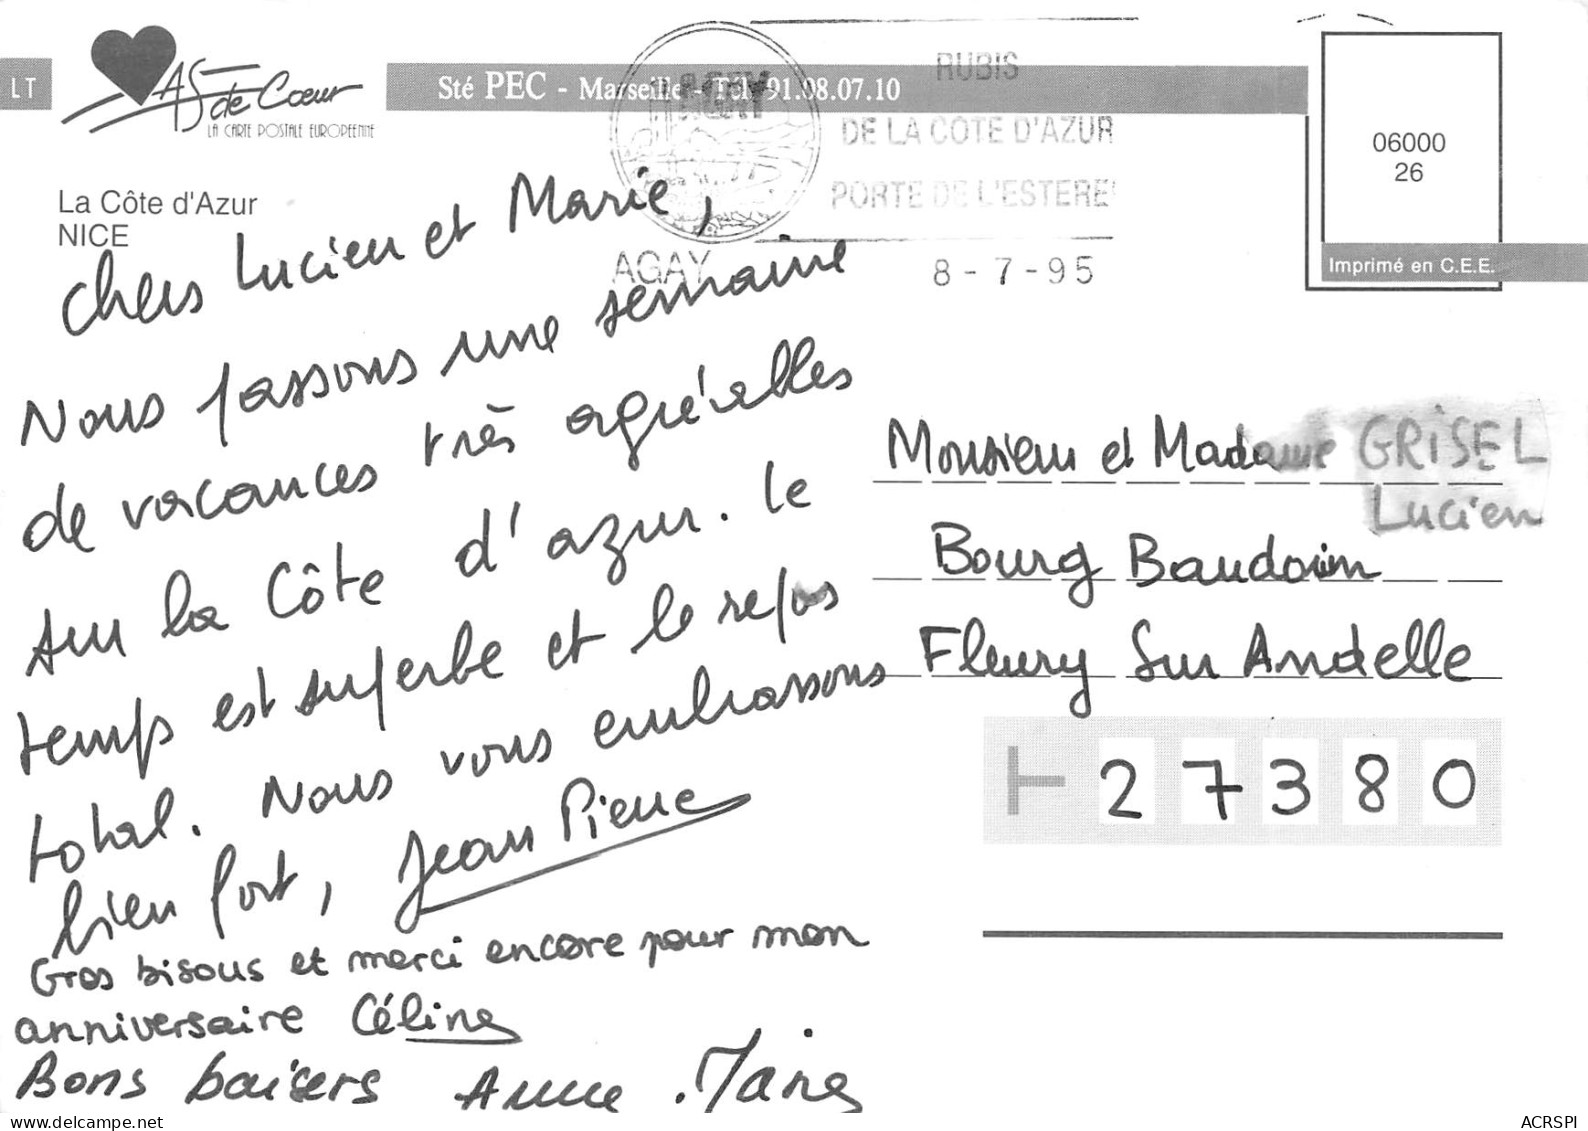 LT
AS de Cœur
LA CARTE POSTALE EUROPEENNE
Sté PEC - Marseille - Tél. 91.08.07.10
La Côte d'Azur
NICE
AGAY
RUBIS
DE LA COTE D'AZUR
PORTE DE L'ESTEREL
AGAY
8 - 7 - 95
06000
26
Imprimé en C.E.E.
Chers Lucien et Marie,
Nous passons une semaine
de vacances très agréables
sur la Côte d'azur. le
temps est superbe et le repos
total. Nous vous embrassons
bien fort, Jean Pierre
Gros bisous et merci encore pour mon
anniversaire Céline
Bons baisers Anne . Marie
Monsieur et Madame GRISEL
Lucien
Bourg Baudouin
Fleury Sur Andelle
27380
delcampe.net
ACRSPI